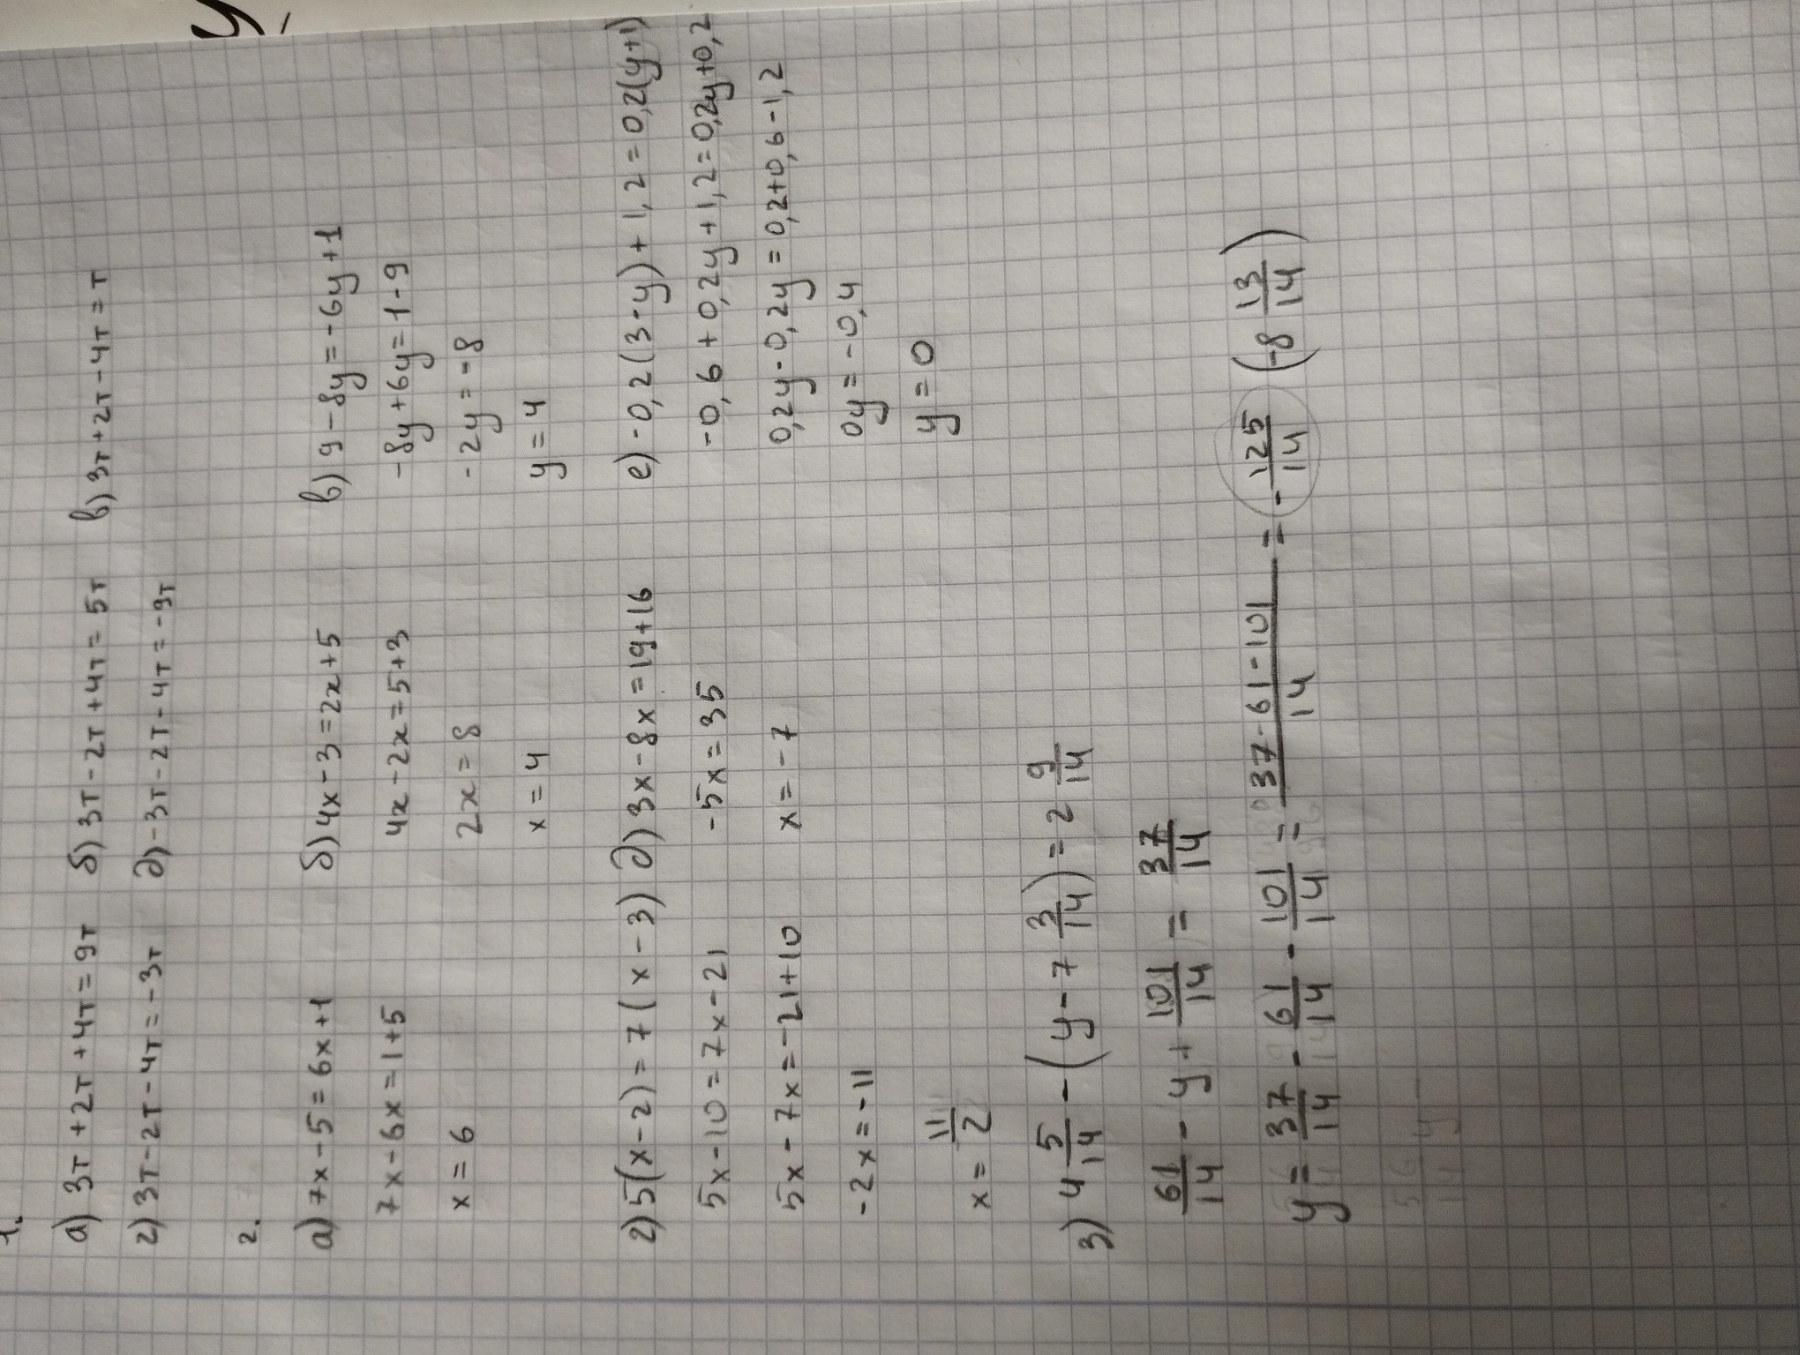 1.
а) 3т + 2т + 4т = 9т б) 3т - 2т + 4т = 5т в) 3т + 2т - 4т = т
г) 3т - 2т - 4т = -3т д) -3т - 2т - 4т = -9т
2.
а) 7x - 5 = 6x + 1 б) 4x - 3 = 2x + 5 в) 9 - 8y = -6y + 1
7x - 6x = 1 + 5 4x - 2x = 5 + 3 -8y + 6y = 1 - 9
x = 6 2x = 8 -2y = -8
x = 4 y = 4
г) 5(x - 2) = 7(x - 3) д) 3x - 8x = 19 + 16 е) -0,2(3 - y) + 1,2 = 0,2(y + 1)
5x - 10 = 7x - 21 -5x = 35 -0,6 + 0,2y + 1,2 = 0,2y + 0,2
5x - 7x = -21 + 10 x = -7 0,2y - 0,2y = 0,2 + 0,6 - 1,2
-2x = -11 0y = -0,4
x = 11/2 y = 0
3) 4 5/14 - (y - 7 3/14) = 2 9/14
61/14 - y + 101/14 = 37/14
y = 37/14 - 61/14 - 101/14 = 37 - 61 - 101/14 = -125/14 (-8 13/14)